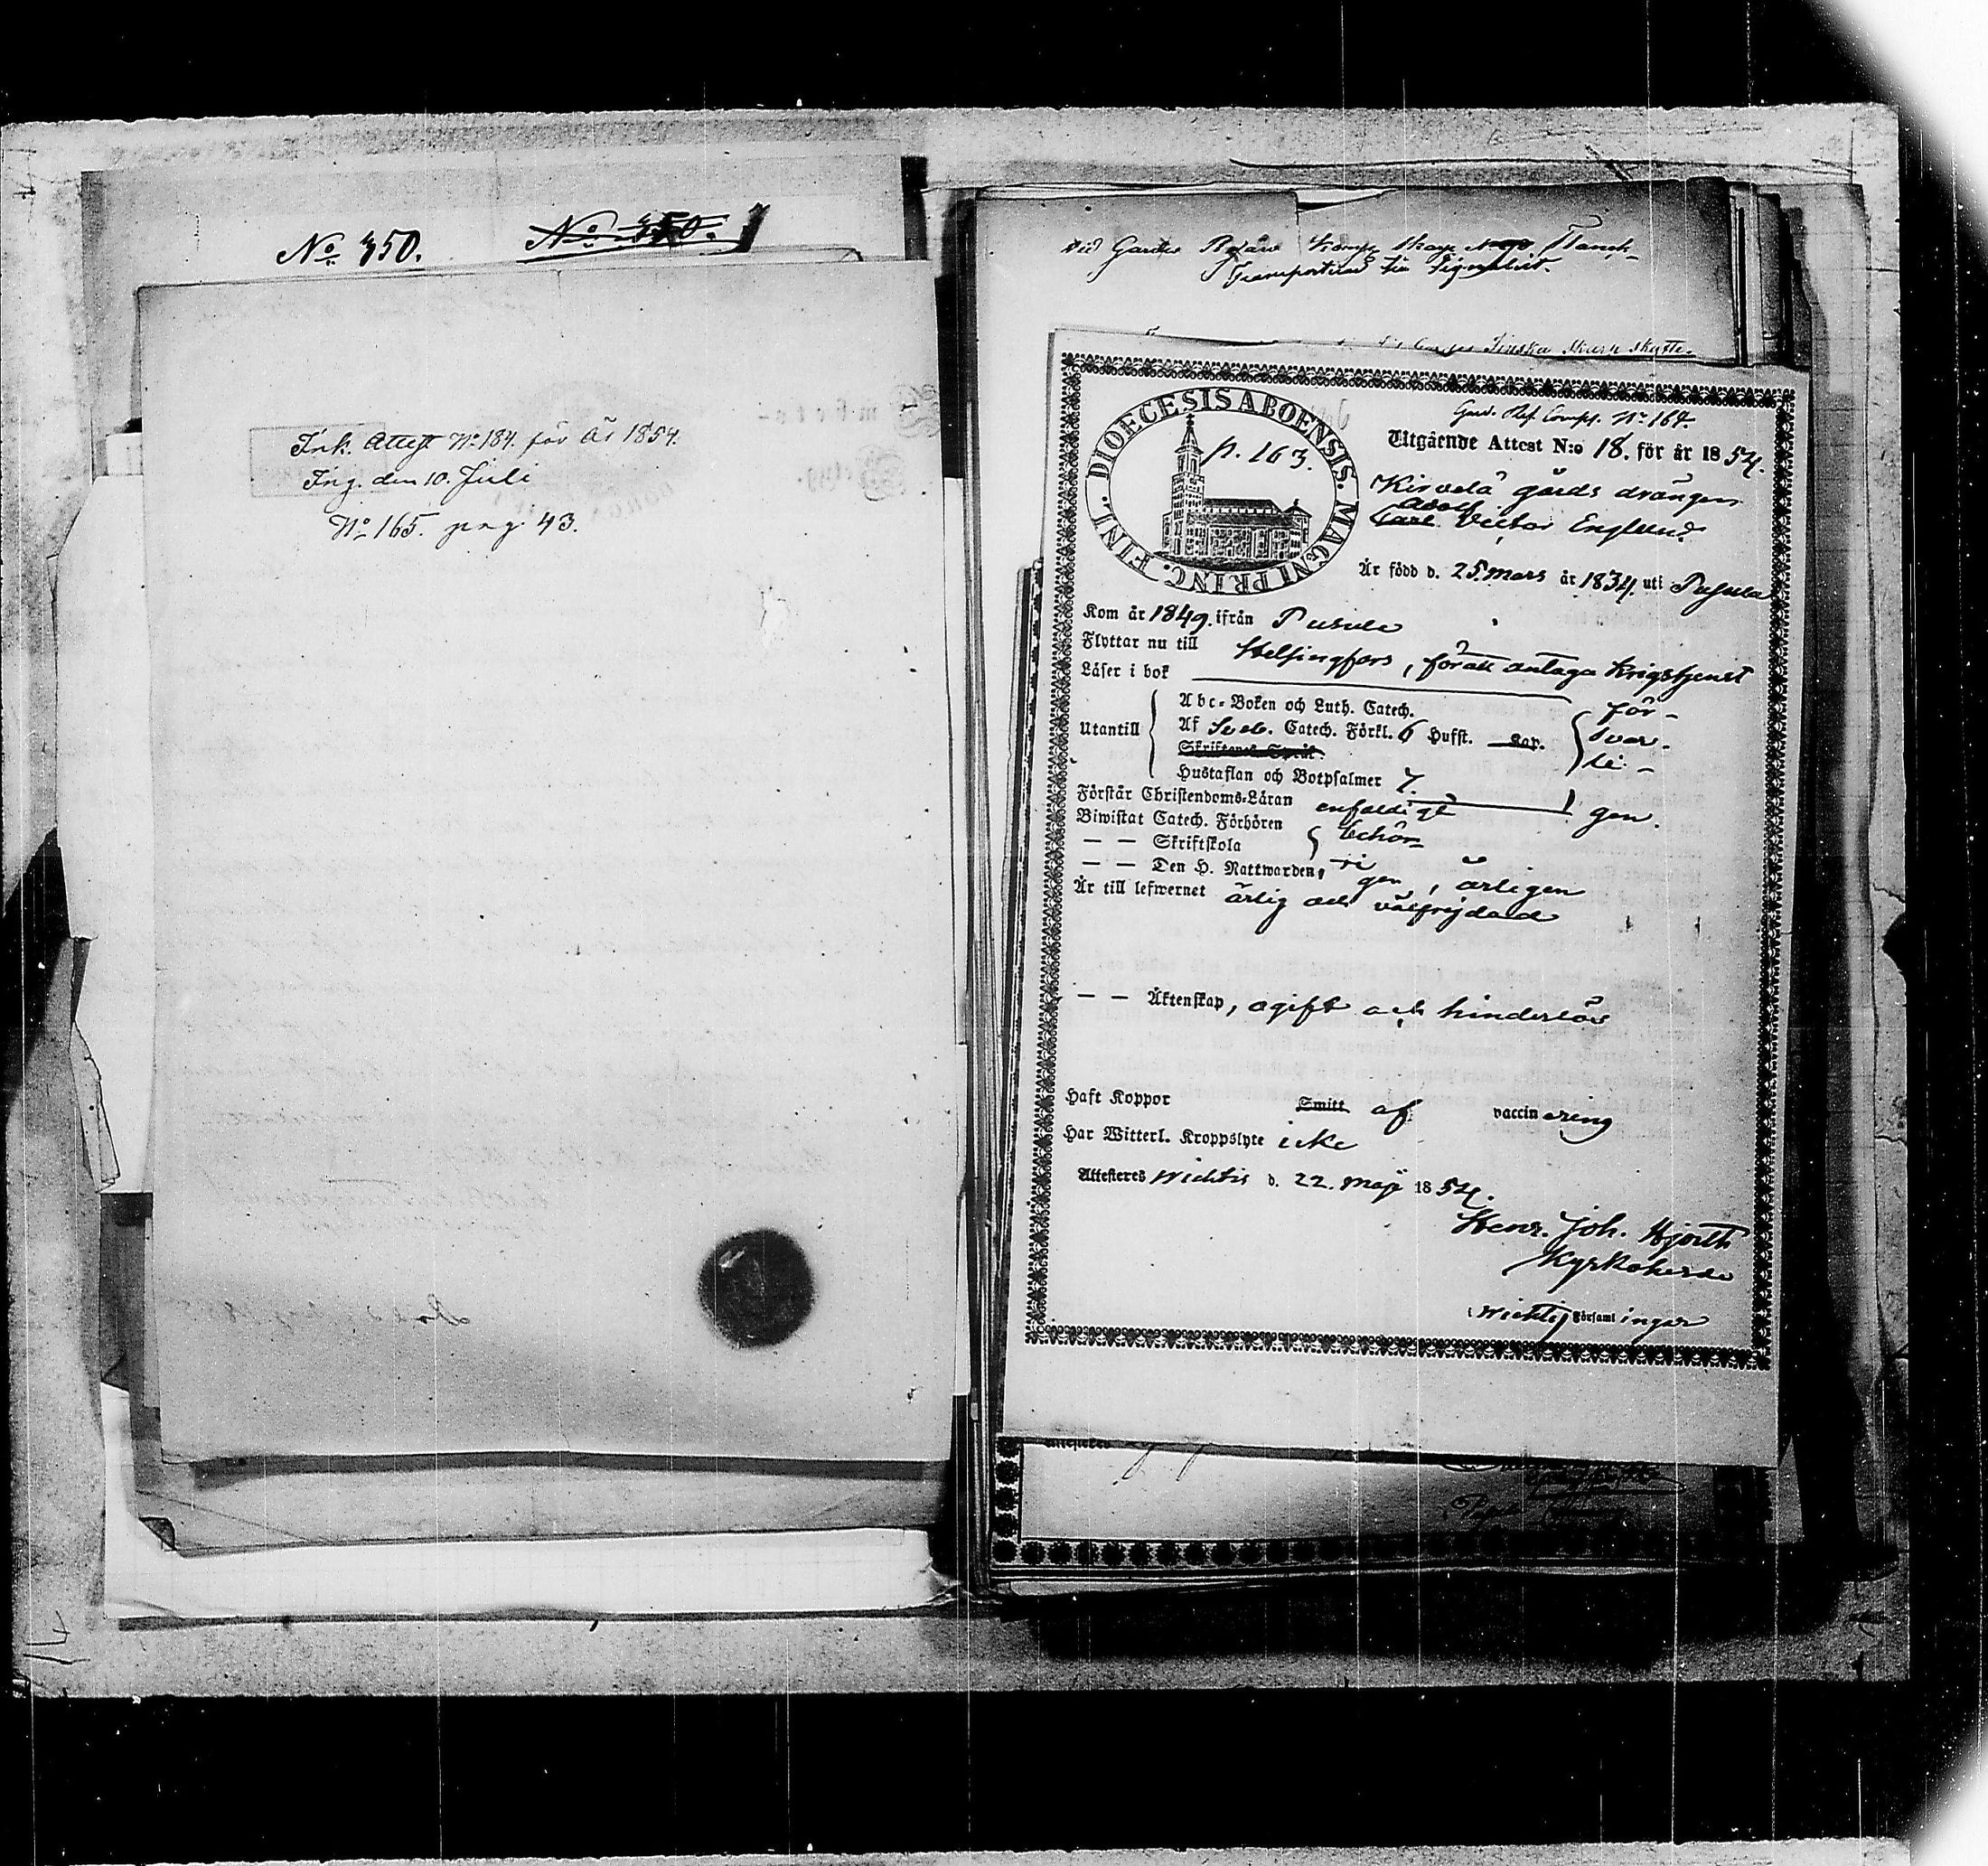 No 350. No 350.
Ink. Attest No 184. för År 1854.
Ing. den 10. Juli
No 165. pag 43.
Vid Gardes Reserv Komp.
Transporterad
Finska Skarp skytte-
DIOECESIS ABOENSIS. MAGNI PRINC. FINL.
p. 163.
Gard. Res. Comp. No 164.
Utgående Attest N:o 18. för år 1854.
Kirvelä gårds drängen
Adolf
Carl Victor Englund.
Är född d. 25. Mars år 1834. uti Pusula
Kom år 1849. ifrån Pusula
Flyttar nu till Helsingfors, för att antaga Krigstjenst
Läser i bok
Utantill
Abc-Boken och Luth. Catech. för-
Af Sveb. Catech. Förkl. 6 Hufst. Kap. svar-
Skriftenes Språk. li-
Hustaflan och Botpsalmer 7.
gen.
Förstår Christendoms-Läran enfaldigt
Biwistat Catech. Förhören behör-
— — Skriftskola i
— — Den H. Nattwarden, gen, årligen
Är till lefwernet ärlig och välfrejdad
— — Äktenskap, ogift och hinderlös
Haft Koppor Smitt af vaccinering
Har Witterl. Kroppslyte icke
Attesteras Wichtis d. 22. Maji 1854.
Henr. Joh. Hjorth
Kyrkoherde
i Wichtis Församlingar
Attesteras